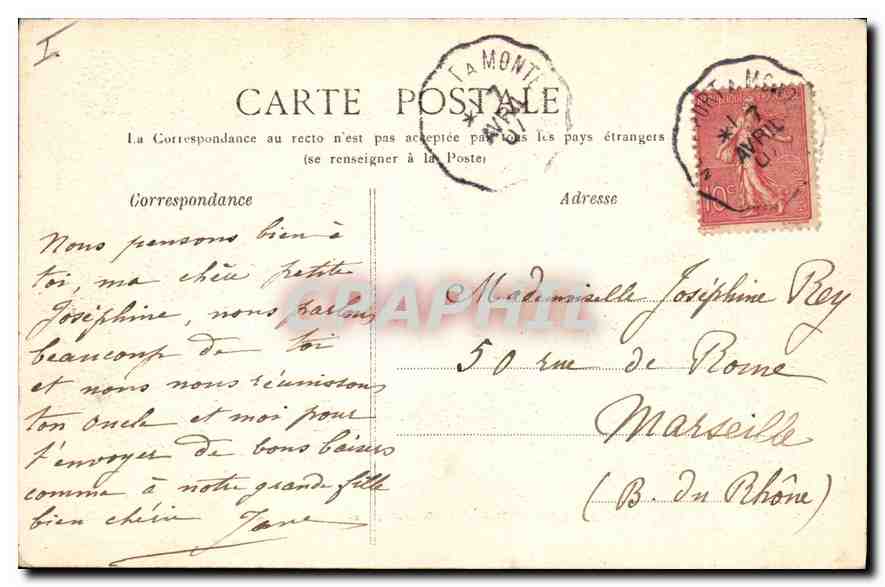 I
CARTE POSTALE
La Correspondance au recto n'est pas acceptée par tous les pays étrangers
(se renseigner à la Poste)
Correspondance
Adresse
T A MONT
1 7
AVRIL
07
ORT A MONT
1 7
AVRIL
07
10c
Nous pensons bien à
toi, ma chère petite
Joséphine, nous parlons
beaucoup de toi
et nous nous réunissons
ton oncle et moi pour
t'envoyer de bons baisers
comme à notre grande fille
bien chérie
Mademoiselle Joséphine Rey
50 rue de Rome
Marseille
(B. du Rhône)
CPAPHIL